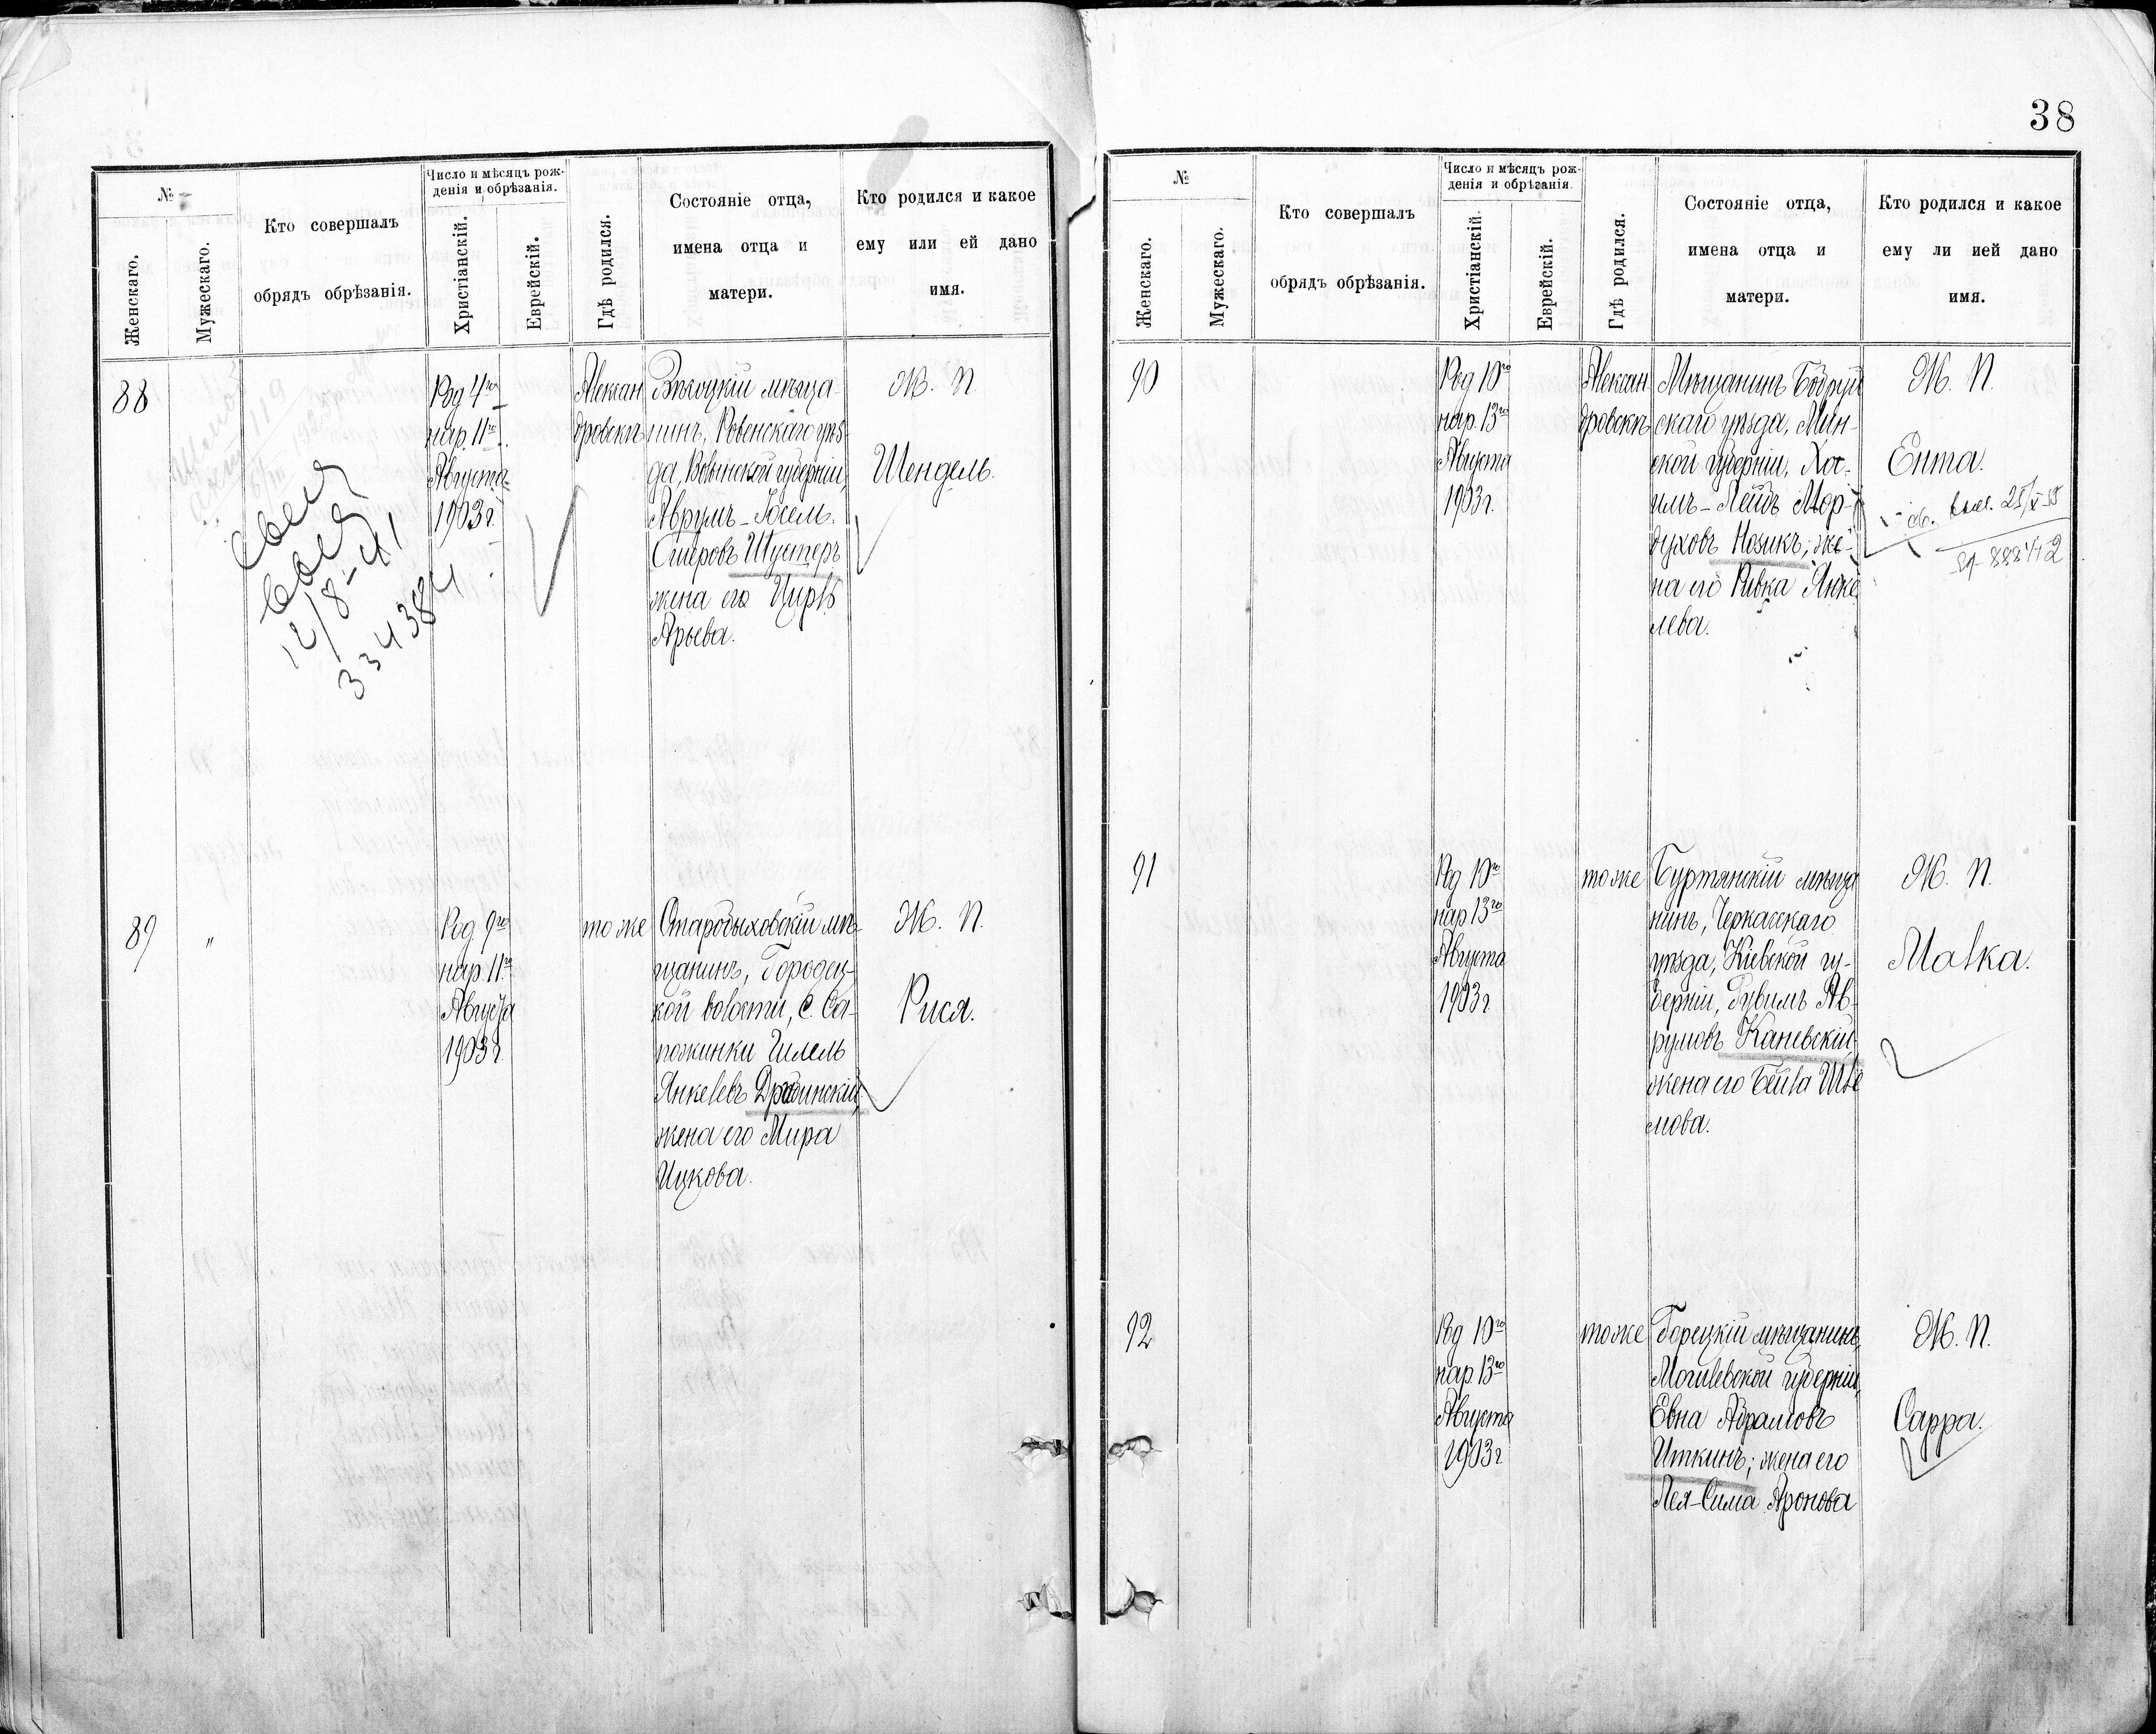 38
№
Женскаго.
Мужескаго.
Кто совершалъ
обрядъ обрѣзанія.
Число и мѣсяцъ рож-
денія и обрѣзанія.
Христіанскій.
Еврейскій.
Гдѣ родился.
Состояніе отца,
имена отца и
матери.
Кто родился и какое
ему или ей дано
имя.
88
Род 4го
нар. 11го
Августа
1903 г.
Алексан
дровскъ
мѣща-
нинъ, Ровенскаго уѣз-
да, Волынской губерніи,
Аврумъ-Іосель
Шустеръ
жена его
Арьева.
Ж. П
Шендель.
12/8-41
334384
89
"
Род. 9го
нар. 11го
Августа
1903 г.
тоже
Старобыховскій мѣ-
щанинъ, Городец-
кой волости, с. Са-
пожинки Гилель
Янкелевъ
жена его Мира
Ицкова.
Ж. П.
Рися.
№
Женскаго.
Мужескаго.
Кто совершалъ
обрядъ обрѣзанія.
Число и мѣсяцъ рож-
денія и обрѣзанія.
Христіанскій.
Еврейскій.
Гдѣ родился.
Состояніе отца,
имена отца и
матери.
Кто родился и какое
ему ли ией дано
имя.
90
Род 10го
нар. 13го
Августа
1903 г.
Алексан
дровскъ
Мѣщанинъ Бобруй
скаго уѣзда, Мин-
ской губерніи, Хаc-
Мор-
духовъ Нозикъ; же-
на его Ривка Янке
лева.
Ж. П.
Ента.
91
Род 10го
нар 13го
Августа
1903 г
тоже
Буртянскій мѣща
нинъ, Черкасскаго
уѣзда, Кіевской гу-
берніи, Рувимъ Ав-
румовъ Каневскій,
жена его Бейла Шле
мова.
Ж. П.
Малка.
92
Род 10го
нар. 13го
Августа
1903 г
тоже
Горецкій мѣщанинъ,
Могилевской губерніи,
Евна Абрамовъ
Иткинъ; жена его
Лея-Сима Аронова
Ж. П.
Сарра.